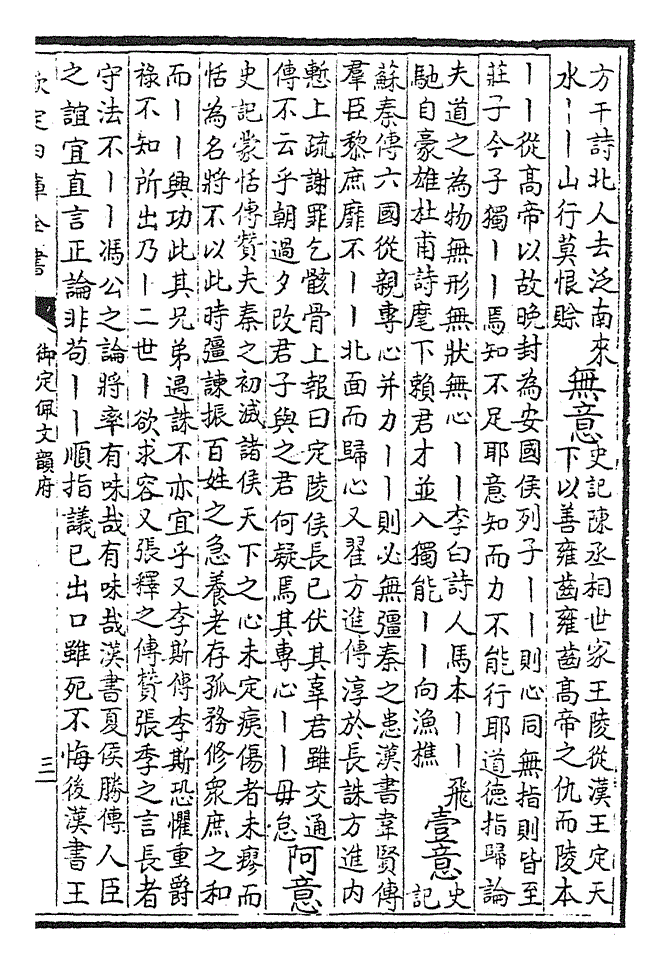 方干詩北人去泛南來
水丨丨山行莫恨賒
無意
史記陳丞相世家王陵從漢王定天
下以善雍齒雍齒髙帝之仇而陵本
丨丨從髙帝以故晚封為安國侯列子丨丨則心同無指則皆至
莊子今子獨丨丨焉知不足耶意知而力不能行耶道德指歸論
夫道之為物無形無狀無心丨丨李白詩人馬本丨丨飛
馳自豪雄杜甫詩麾下賴君才並入獨能丨丨向漁樵
壹意
史
記
蘇秦傳六國從親專心并力丨丨則必無彊秦之患漢書韋賢傳
羣臣黎庶靡不丨丨北面而歸心又翟方進傳淳於長誅方進内
慙上疏謝罪乞骸骨上報曰定陵侯長已伏其辜君雖交通
傳不云乎朝過夕改君子與之君何疑焉其專心丨丨毋怠
阿意
史記蒙恬傳贊夫秦之初滅諸侯天下之心未定痍傷者未瘳而
恬為名將不以此時彊諫振百姓之急養老存孤務修衆庶之和
而丨丨興功此其兄弟遇誅不亦宜乎又李斯傳李斯恐懼重爵
祿不知所出乃丨二世丨欲求容又張釋之傳贊張季之言長者
守法不丨丨馮公之論將率有味哉有味哉漢書夏侯勝傳人臣
之誼宜直言正論非苟丨丨順指議已出口雖死不悔後漢書王
欽定四庫全書
御定佩文韻府
三